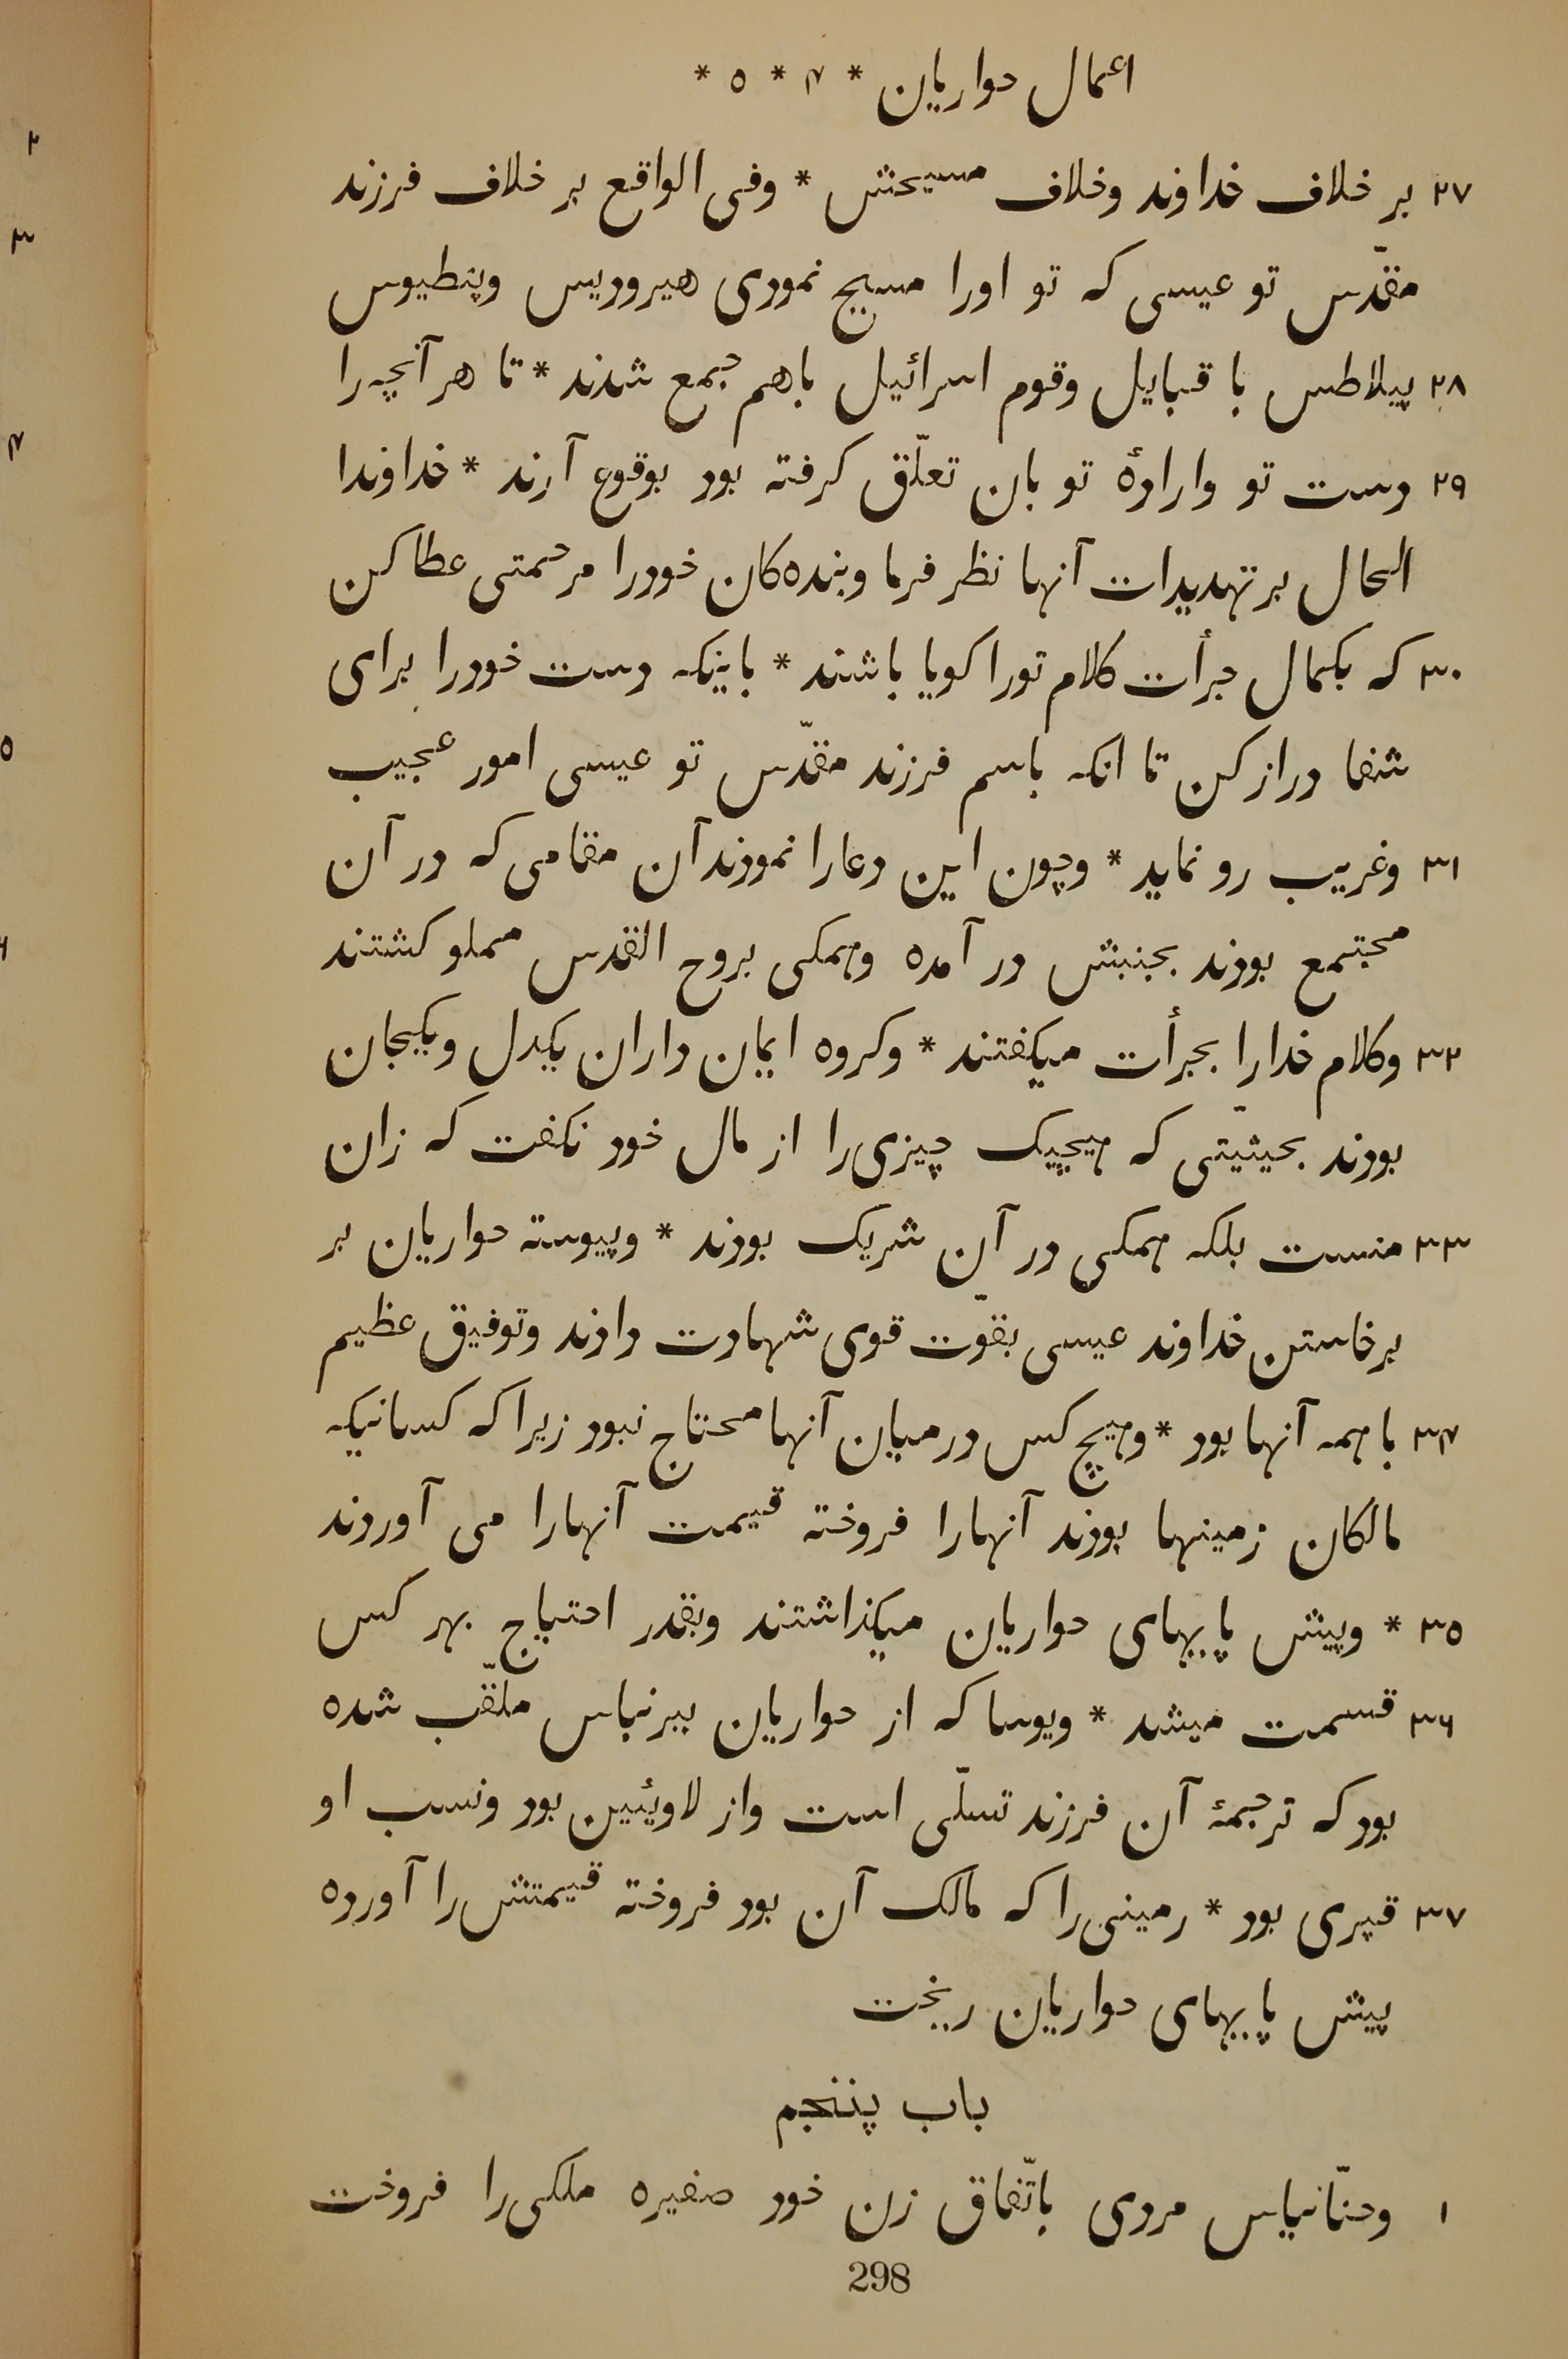 اعمال حواریان * ۴ * ۵ *
۲۷ بر خلاف خداوند وخلاف مسیحش * وفی الواقع بر خلاف فرزند
مقدّس تو عیسی که تو اورا مسیح نمودی هیرودیس وپنطیوس
۲۸ پیلاطس با قبایل وقوم اسرائیل باهم جمع شدند * تا هر آنچه را
۲۹ دست تو وارادهٔ تو بان تعلّق کرفته بود بوقوع آرند * خداوندا
الحال بر تهدیدات آنها نظر فرما وبنده کان خودرا مرحمتی عطا کن
۳۰ که بکمال جرأت کلام تورا کویا باشند * باینکه دست خودرا برای
شفا دراز کن تا انکه باسم فرزند مقدّس تو عیسی امور عجیب
۳۱ وغریب رو نماید * وچون این دعارا نمودند آن مقامی که در آن
مجتمع بودند بجنبش در آمده وهمکی بروح القدس مملو کشتند
۳۲ وکلام خدارا بجرأت میکفتند * وکروه ایمان داران یکدل ویکجان
بودند بحیثیّتی که هیچیک چیزی را از مال خود نکفت که زان
۳۳ منست بلکه همکی در آن شریک بودند * وپیوسته حواریان بر
برخاستن خداوند عیسی بقوّت قوی شهادت دادند وتوفیق عظیم
۳۴ با همه آنها بود * وهیچ کس در میان آنها محتاج نبود زیرا که کسانیکه
مالکان زمینها بودند آنهارا فروخته قیمت آنهارا می آوردند
۳۵ * وپیش پایهای حواریان میکذاشتند وبقدر احتیاج بهر کس
۳۶ قسمت میشد * ویوسا که از حواریان ببرنباس ملقّب شده
بود که ترجمهٔ آن فرزند تسلّی است واز لاویئین بود ونسب او
۳۷ قپری بود * رمینی را که مالک آن بود فروخته قیمتش را آورده
پیش پایهای حواریان ریخت
باب پننجم
۱ وحنّانیاس مردی باتّفاق زن خود صفیره ملکی را فروخت
298
۲
۳
۴
۵
۶